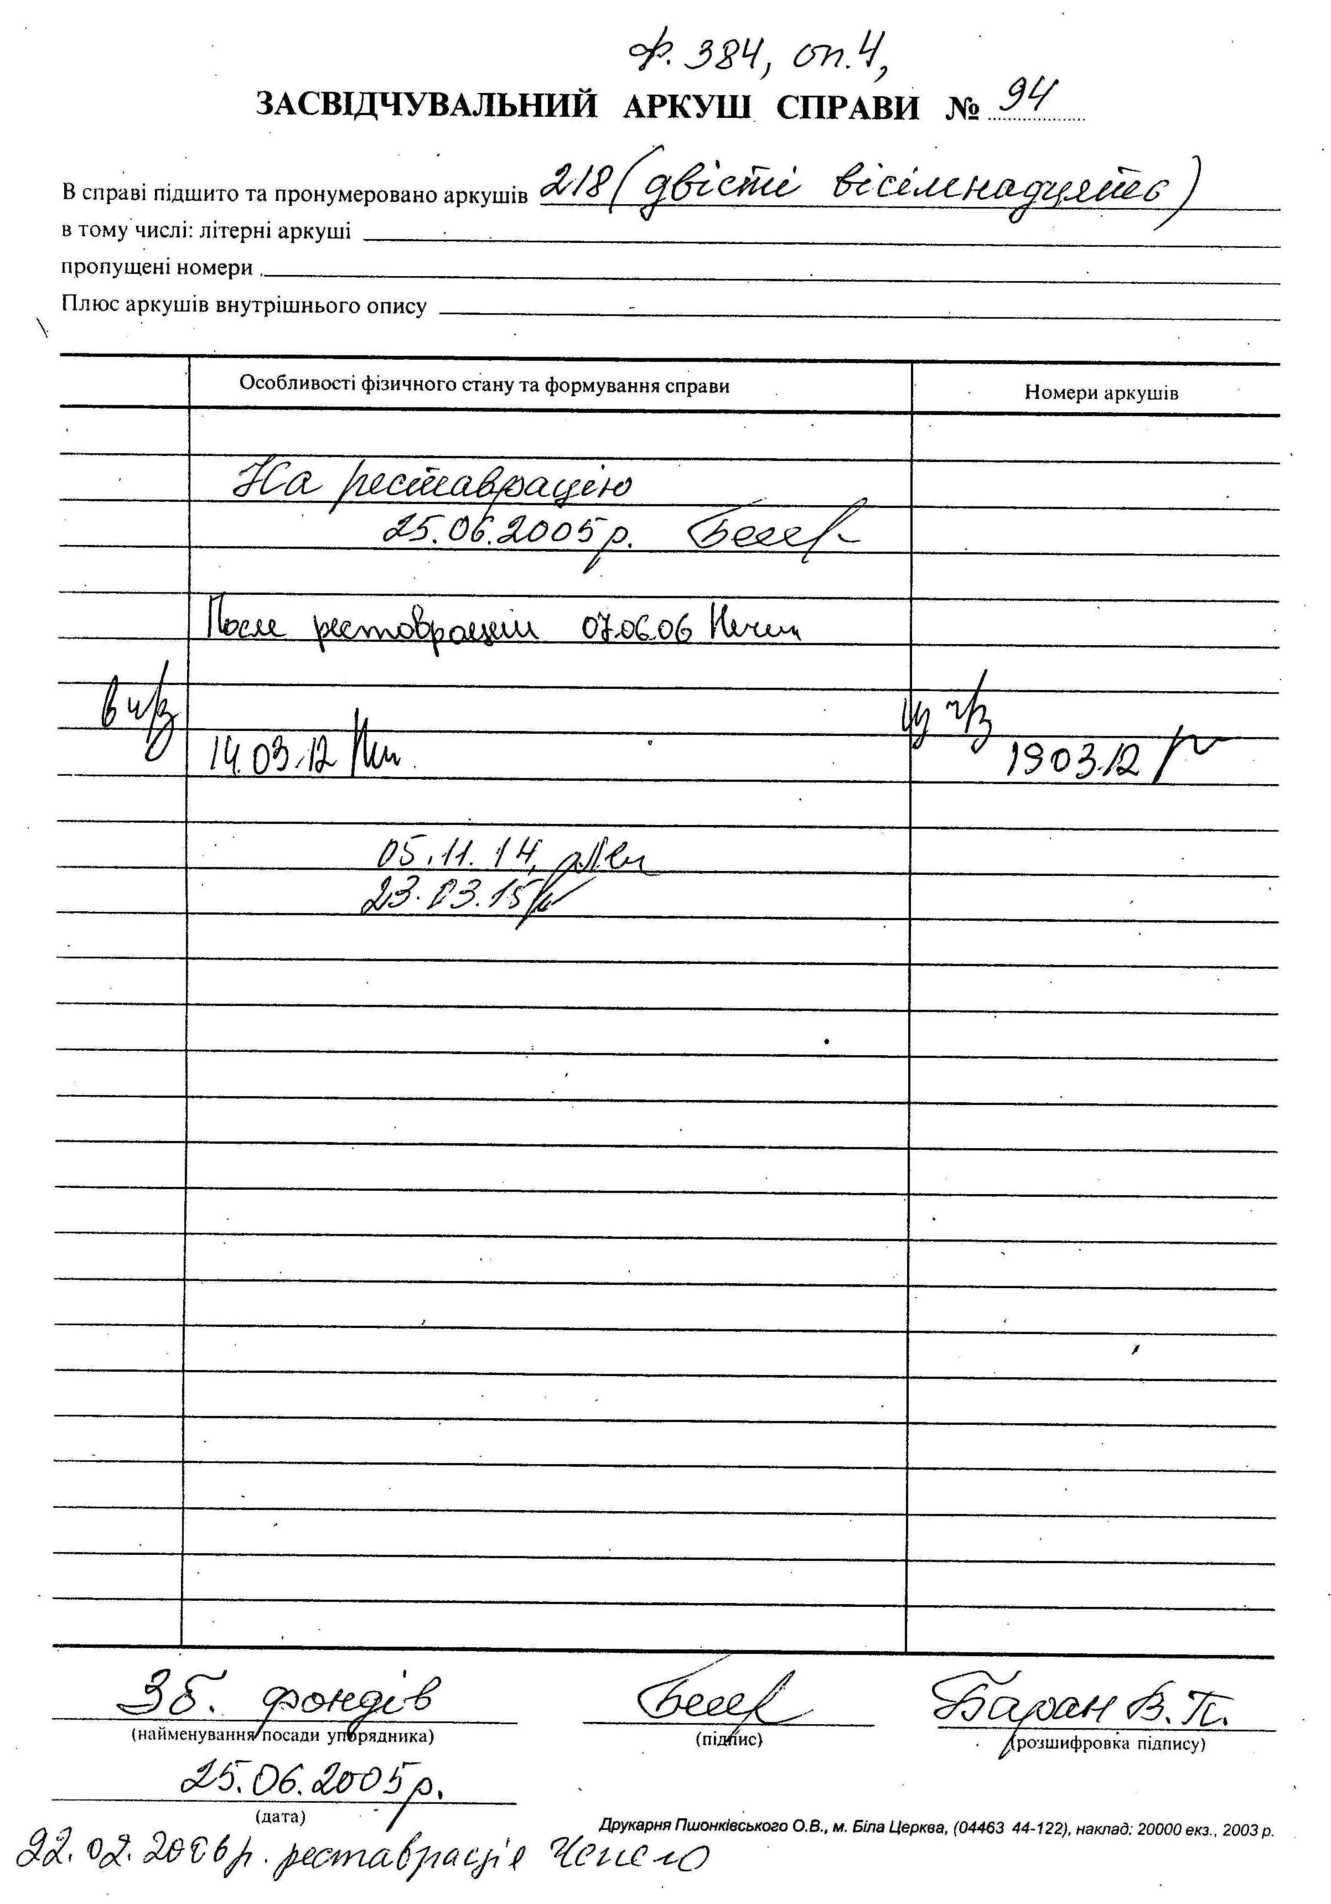 ф. 384, оп. 4,
ЗАСВІДЧУВАЛЬНИЙ АРКУШ СПРАВИ № 94
В справі підшито та пронумеровано аркушів 218 (двісті вісімнадцять)
в тому числі: літерні аркуші
пропущені номери
Плюс аркушів внутрішнього опису
Особливості фізичного стану та формування справи Номери аркушів
На реставрацію
25.06.2005 р.
После реставрации 07.06.06
в ч/з из ч/з
14.03.12 19.03.12
05.11.14,
23.03.15
Зб. фондів Баран В.П.
(найменування посади упорядника) (підпис) (розшифровка підпису)
25.06.2005 р.
(дата)
Друкарня Пшонківського О.В., м. Біла Церква, (04463 44-122), наклад: 20000 екз., 2003 р.
22.02.2006 р. реставрація